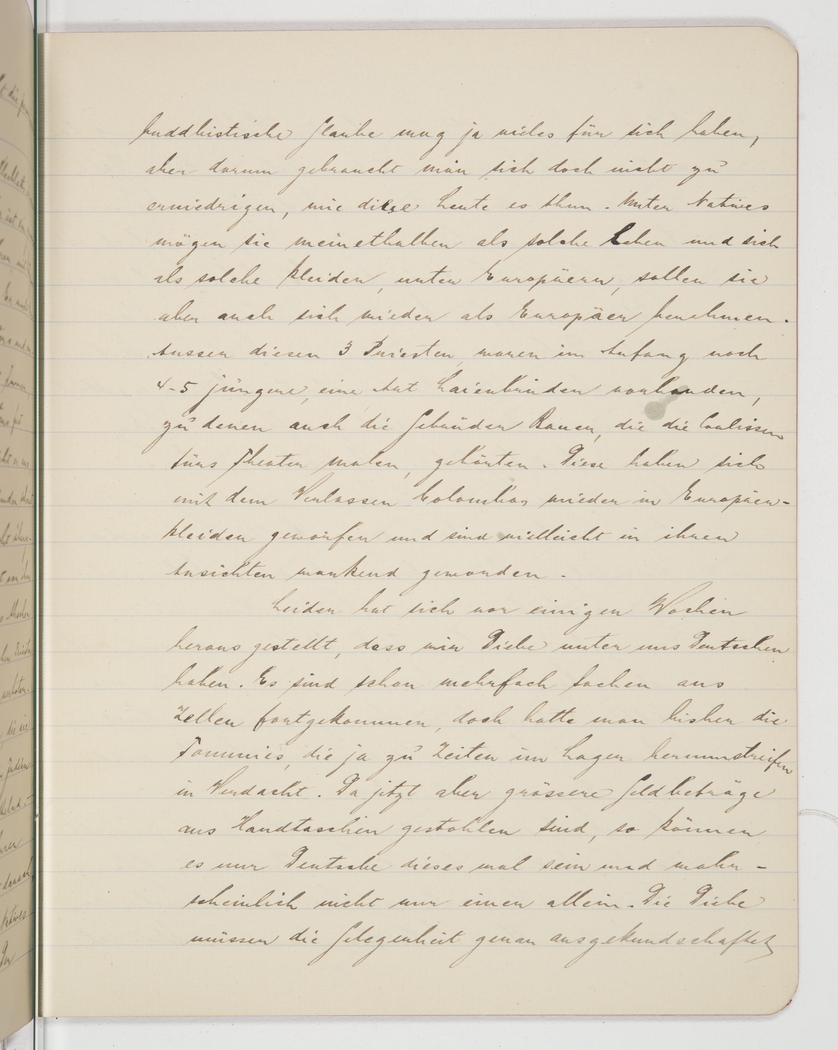 buddhistische Glaube mag ja vieles für sich haben,
aber darum gebraucht man sich doch nicht zu
erniedrigen, wie diese Leute es thun. Unter Natives
mögen sie meinethalben als solche leben und sich
als solche kleiden, unter Europäern, sollen sie
aber auch sich wieder als Europäer benehmen.
Ausser diesen 3 Priestern waren im Anfang noch
4-5 jüngere, eine Art Laienbrüder vorhanden,
zu denen auch die Gebrüder Bauer, die die Coulissen
fürs Theater malen, gehörten. Diese haben sich
mit dem Verlassen Colombos wieder in Europäer-
kleider geworfen und sind vielleicht in ihren
Ansichten wankend geworden.
Leider hat sich vor einigen Wochen
heraus gestellt, dass wir Diebe unter uns Deutschen
haben. Es sind schon mehrfach Sachen aus
Zellen fortgekommen, doch hatte man bisher die
Tommies, die ja zu Zeiten im Lager herumstreifen
in Verdacht. Da jetzt aber grössere Geldbeträge
aus Handtaschen gestohlen sind, so können
es nur Deutsche dieses mal sein und wahr-
scheinlich nicht nur einer allein. Die Diebe
müssen die Gelegenheit genau ausgekundschaftet